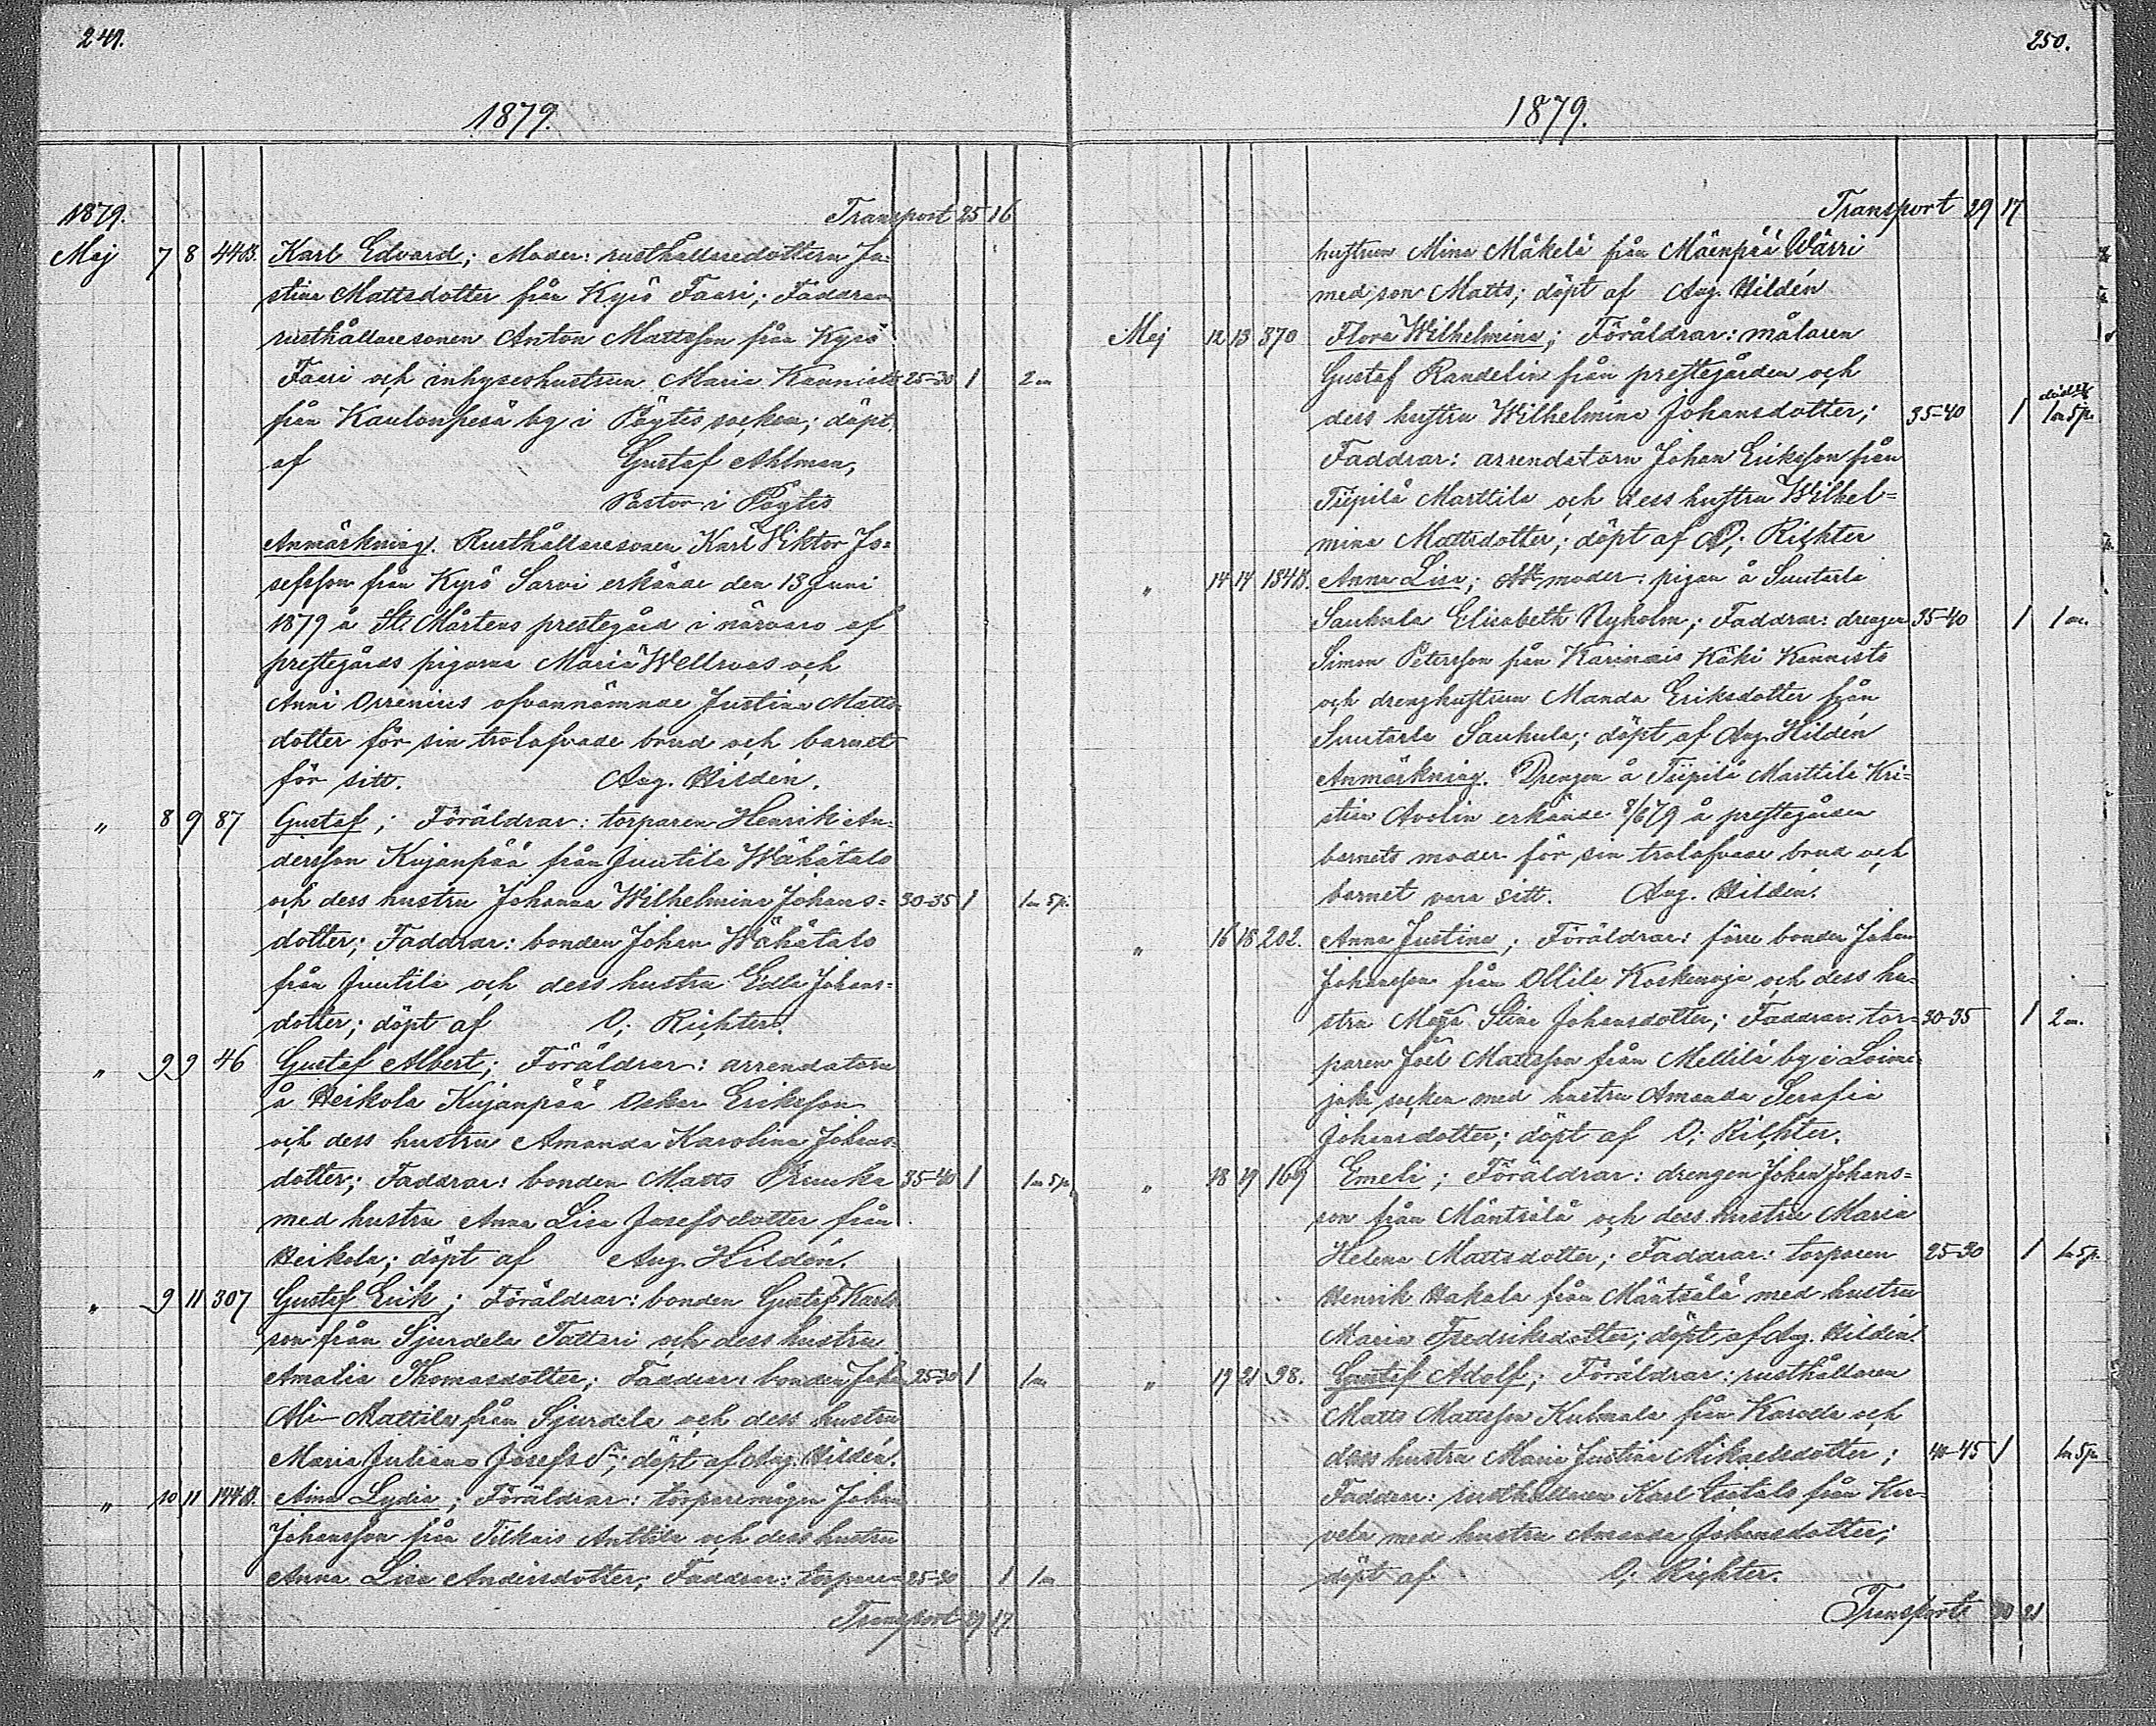 249.
1879.
1879. Transport 25 16
Maj 7 8 44B. Karl Edvard; Moder: rusthållaredottern Ju-
stina Mattsdotter från Kyrö Faari; Faddrar
rusthållaresonen Anton Mattsson från Kyrö
Faari och inhyseshustrun Maria Kannisto 25-30 1 2m
från Kaulanperä by i Pöytis socken; döpt
af Gustaf Ahlman,
Pastor i Pöytis
Anmärkning. Rusthållaresonen Karl Viktor Jo-
sefsson från Kyrö Sarvi erkände den 13 Juni
1879 å St. Mårtens prestegård i närvaro af
prestegårds pigorna Maria Wellroos och
Anni Orrenius ofvannämnde Justina Matts-
dotter för sin trolofvade brud och barnet
för sitt. Aug. Hildén.
" 8 9 87 Gustaf; Föräldrar: torparen Henrik An-
dersson Kujanpää från Juutila Wähätalo
och dess hustru Johanna Wilhelmina Johans- 30-35 1 1m 5p.
dotter; Faddrar: bonden Johan Wähätalo
från Juutila och dess hustru Edla Johans-
dotter; döpt af O. Richter.
" 9 9 46 Gustaf Albert; Föräldrar: arrendatorn
å Heikola Kujanpää Oskar Eriksson
och dess hustru Amanda Karolina Johans-
dotter; Faddrar: bonden Matts Prunka 35-40 1 1m 5p.
med hustru Anna Lisa Josefsdotter från
Heikola; döpt af Aug. Hildén.
" 9 11 307 Gustaf Erik; Föräldrar: bonden Gustaf Karls-
son från Sjurdela Tattari och dess hustru
Amalia Thomasdotter; Faddrar: bonden Johan 25-30 1 1m
Ali-Mattila från Sjurdila och dess hustru
Maria Juliana Josefs Dr; döpt af Aug. Hildén.
" 10 11 144B. Aina Lydia; Föräldrar: torparemågen Johan
Johansson från Tilkais Anttila och dess hustru
Anna Lisa Andersdotter; Faddrar: torpare- 25-30 1 1m
Transport 29 17.
250.
1879.
Transport 29 17
hustrun Mina Mäkelä från Mäenpää Wärri
med son Matts; döpt af Aug. Hildén
Maj 12 13 370 Flora Wilhelmina; Föräldrar: målaren
Gustaf Randelin från prestegården och
dess hustru Wilhelmina Johansdotter; 35-40 1 1m 5p.
Faddrar: arrendatorn Johan Eriksson från
Tiipilä Marttila och dess hustru Wilhel-
mina Mattsdotter; döpt af O. Richter
" 14 14 184B. Anna Lisa; moder: pigan å Suutarla
Sauhula Elisabeth Nyholm; Faddrar: drengen 35-40 1 1m.
Simon Petersson från Karinais Käki Kannisto
och drenghustrun Manda Eriksdotter från
Suutarla Sauhula; döpt af Aug. Hildén
Anmärkning. Drengen å Tiipilä Marttila Kri-
stian Avolin erkände 8/6 79 å prestegården
barnets moder för sin trolofvade brud och
barnet vara sitt. Aug. Hildén.
" 16 18 202. Anna Justina; Föräldrar: förre bonden Johan
Johansson från Ollila Koskenoja och dess hu-
stru Maja Stina Johansdotter; Faddrar: tor- 30-35 1 2m.
paren Joel Mattsson från Mellilä by i Loimi-
joki socken med hustru Amanda Serafia
Johansdotter; döpt af O. Richter.
" 18 19 169 Emeli; Föräldrar: drengen Johan Johans-
son från Mäntsälä och dess hustru Maria
Helena Mattsdotter; Faddrar: torparen 25-30 1 1m 5p.
Henrik Hakala från Mäntsälä med hustru
Maria Fredriksdotter; döpt af Aug. Hildén.
" 19 21 98. Gustaf Adolf; Föräldrar: rusthållaren
Matts Mattsson Kulmala från Karvela och
dess hustru Maria Justina Mikaelsdotter; 40-45 1 1m 5p.
Faddrar: rusthållaren Karl från Kar-
vela med hustru Amanda Johansdotter;
döpt af O. Richter.
Transport 30 21